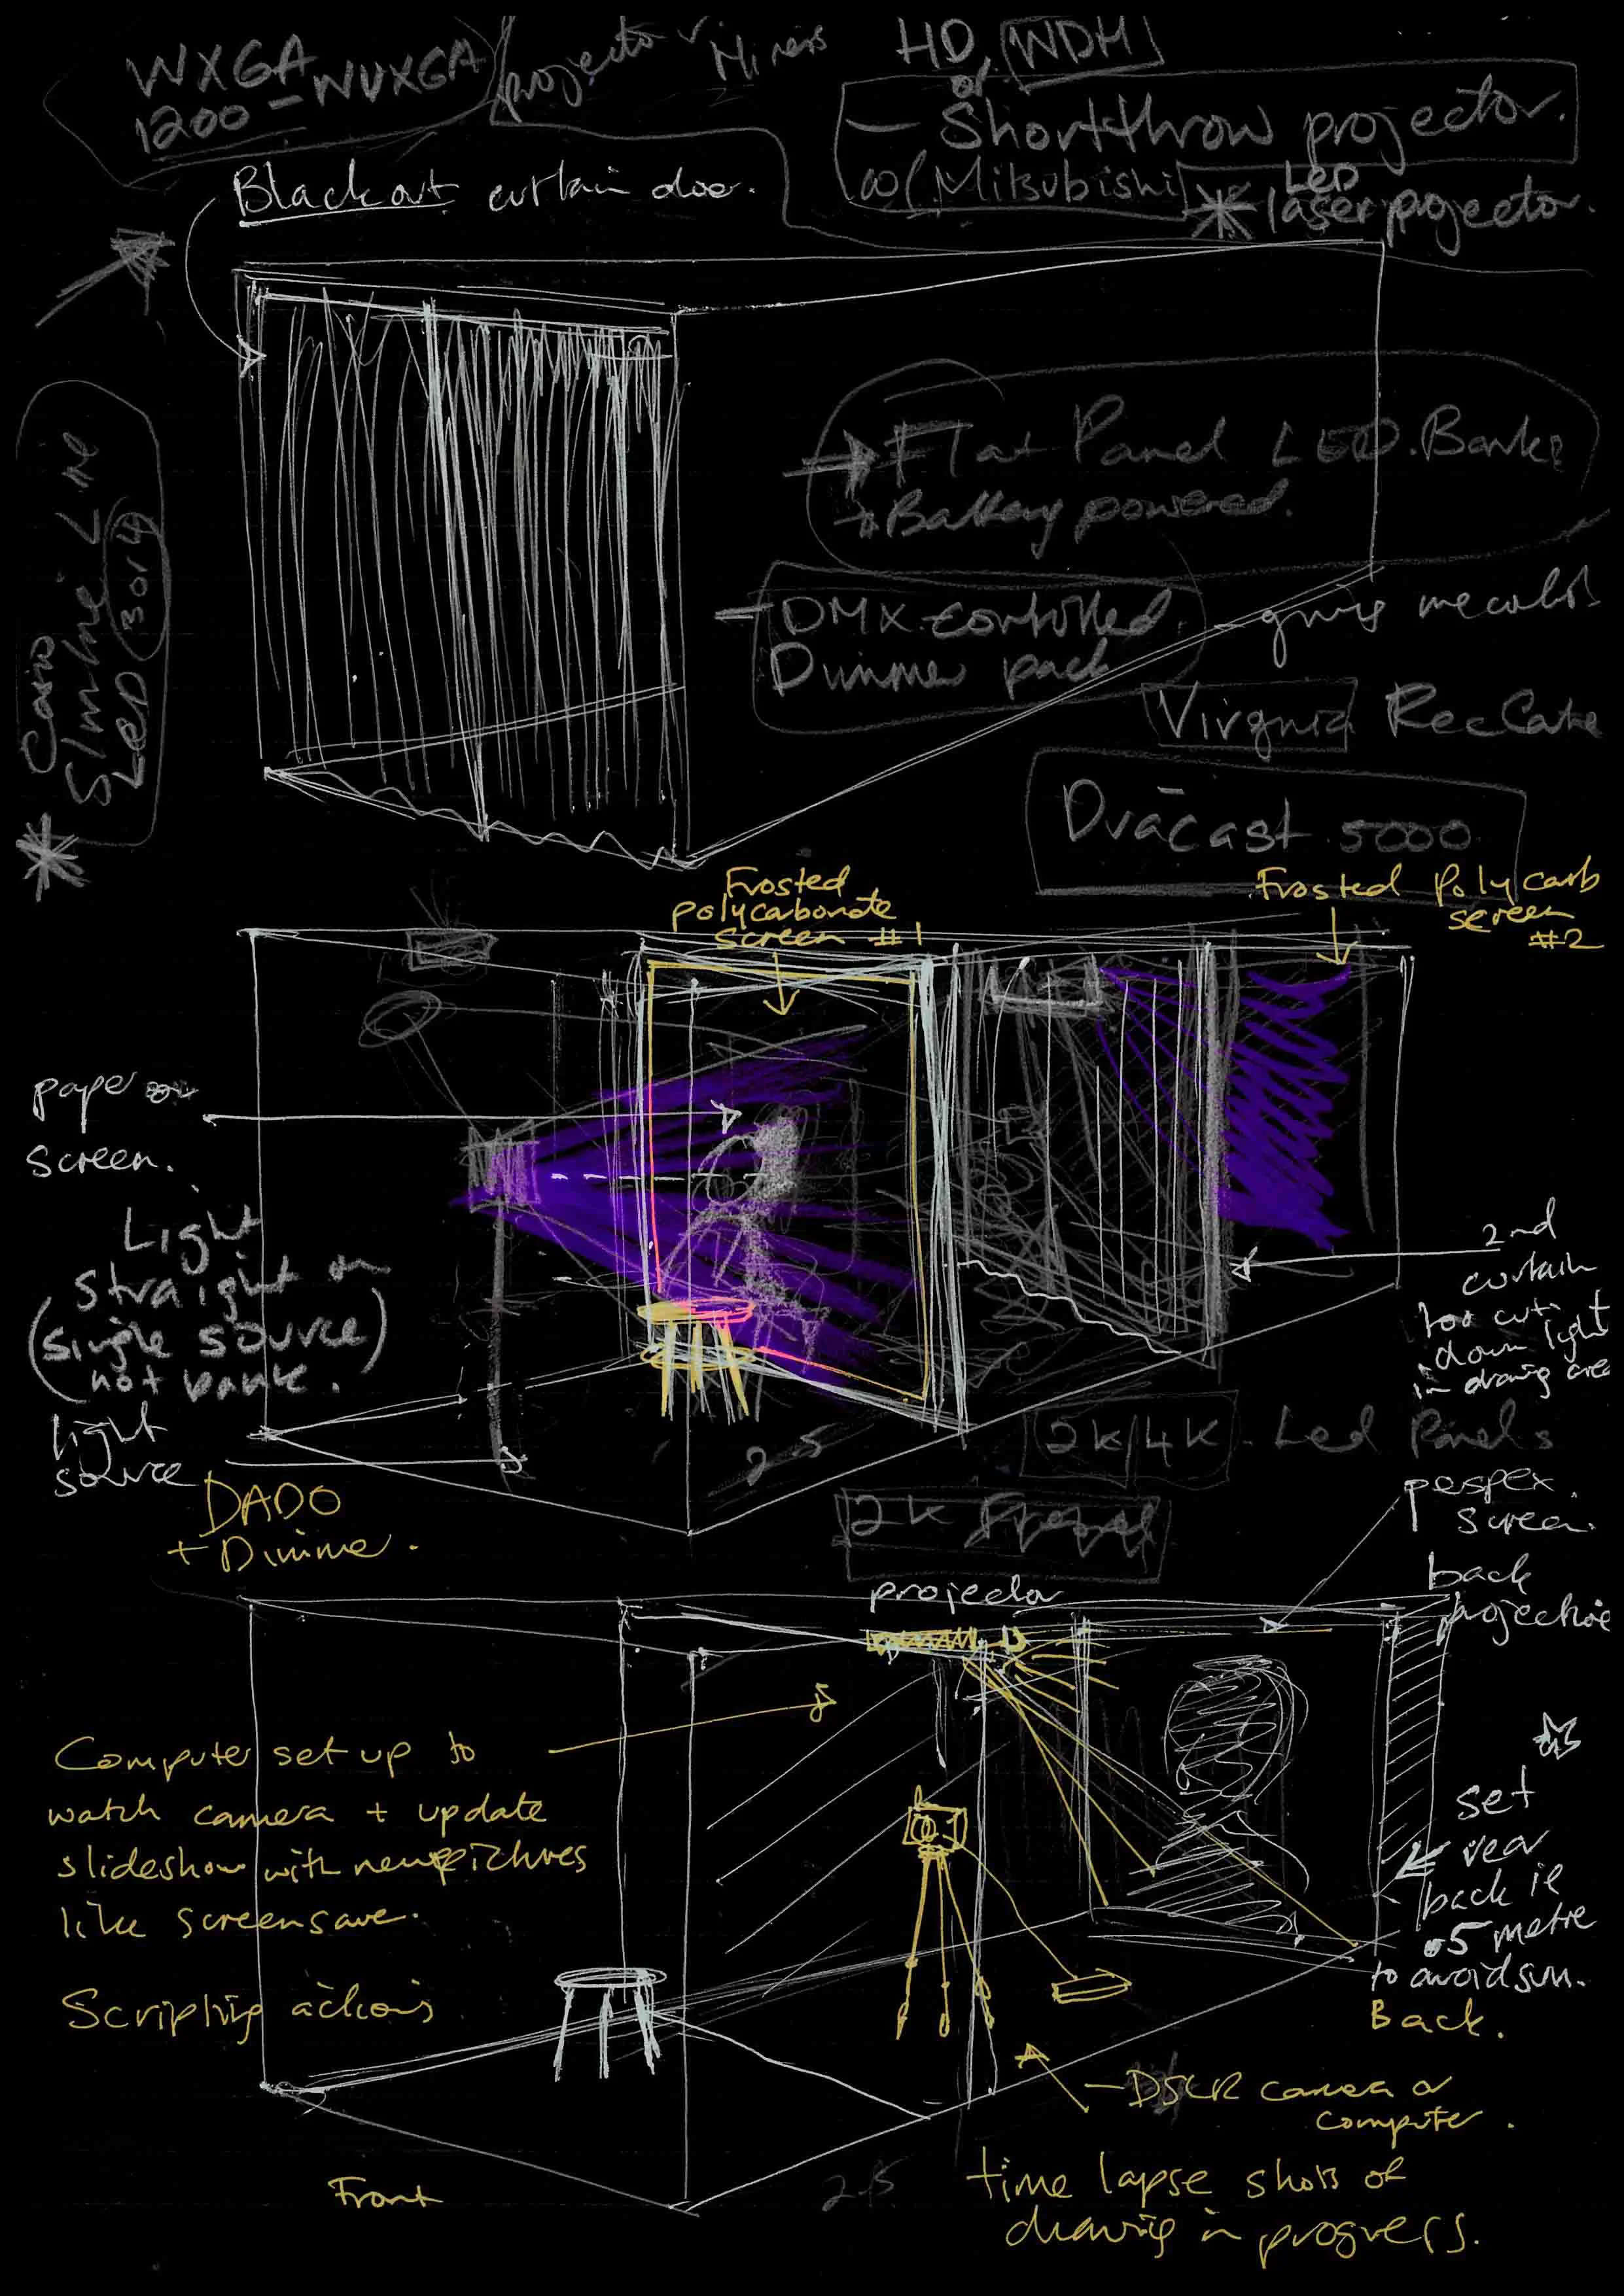 WXGA
1200 - WUXGA
projector
HD or WDM
- Shortthrow projector.
(Mitsubishi)
LED
laser projector.
Blackout curtain door.
Flat Panel LED Bank
+ Battery powered.
- DMX controlled
Dimmer pack
Virginia
Dvacast 5000
Casio
Slimline Line
LED 3 or 4
Frosted
polycarbonate
screen #1
Frosted polycarb
screen
#2
paper on
screen.
Light
straight on
(single source)
not bank.
light
source
DADO
+ Dimmer.
2nd
curtain
too cut
down light
in drawing area
2.5
2K/4K Led Panels
2K
perspex
screen.
back
projection
projector
Computer set up to
watch camera + update
slideshow with new pictures
like screensaver.
Scripting actions
set
rear
back ie
.5 metre
to avoid sun.
Back.
- DSLR camera or
computer.
time lapse shots of
drawing in progress.
Front
2.5